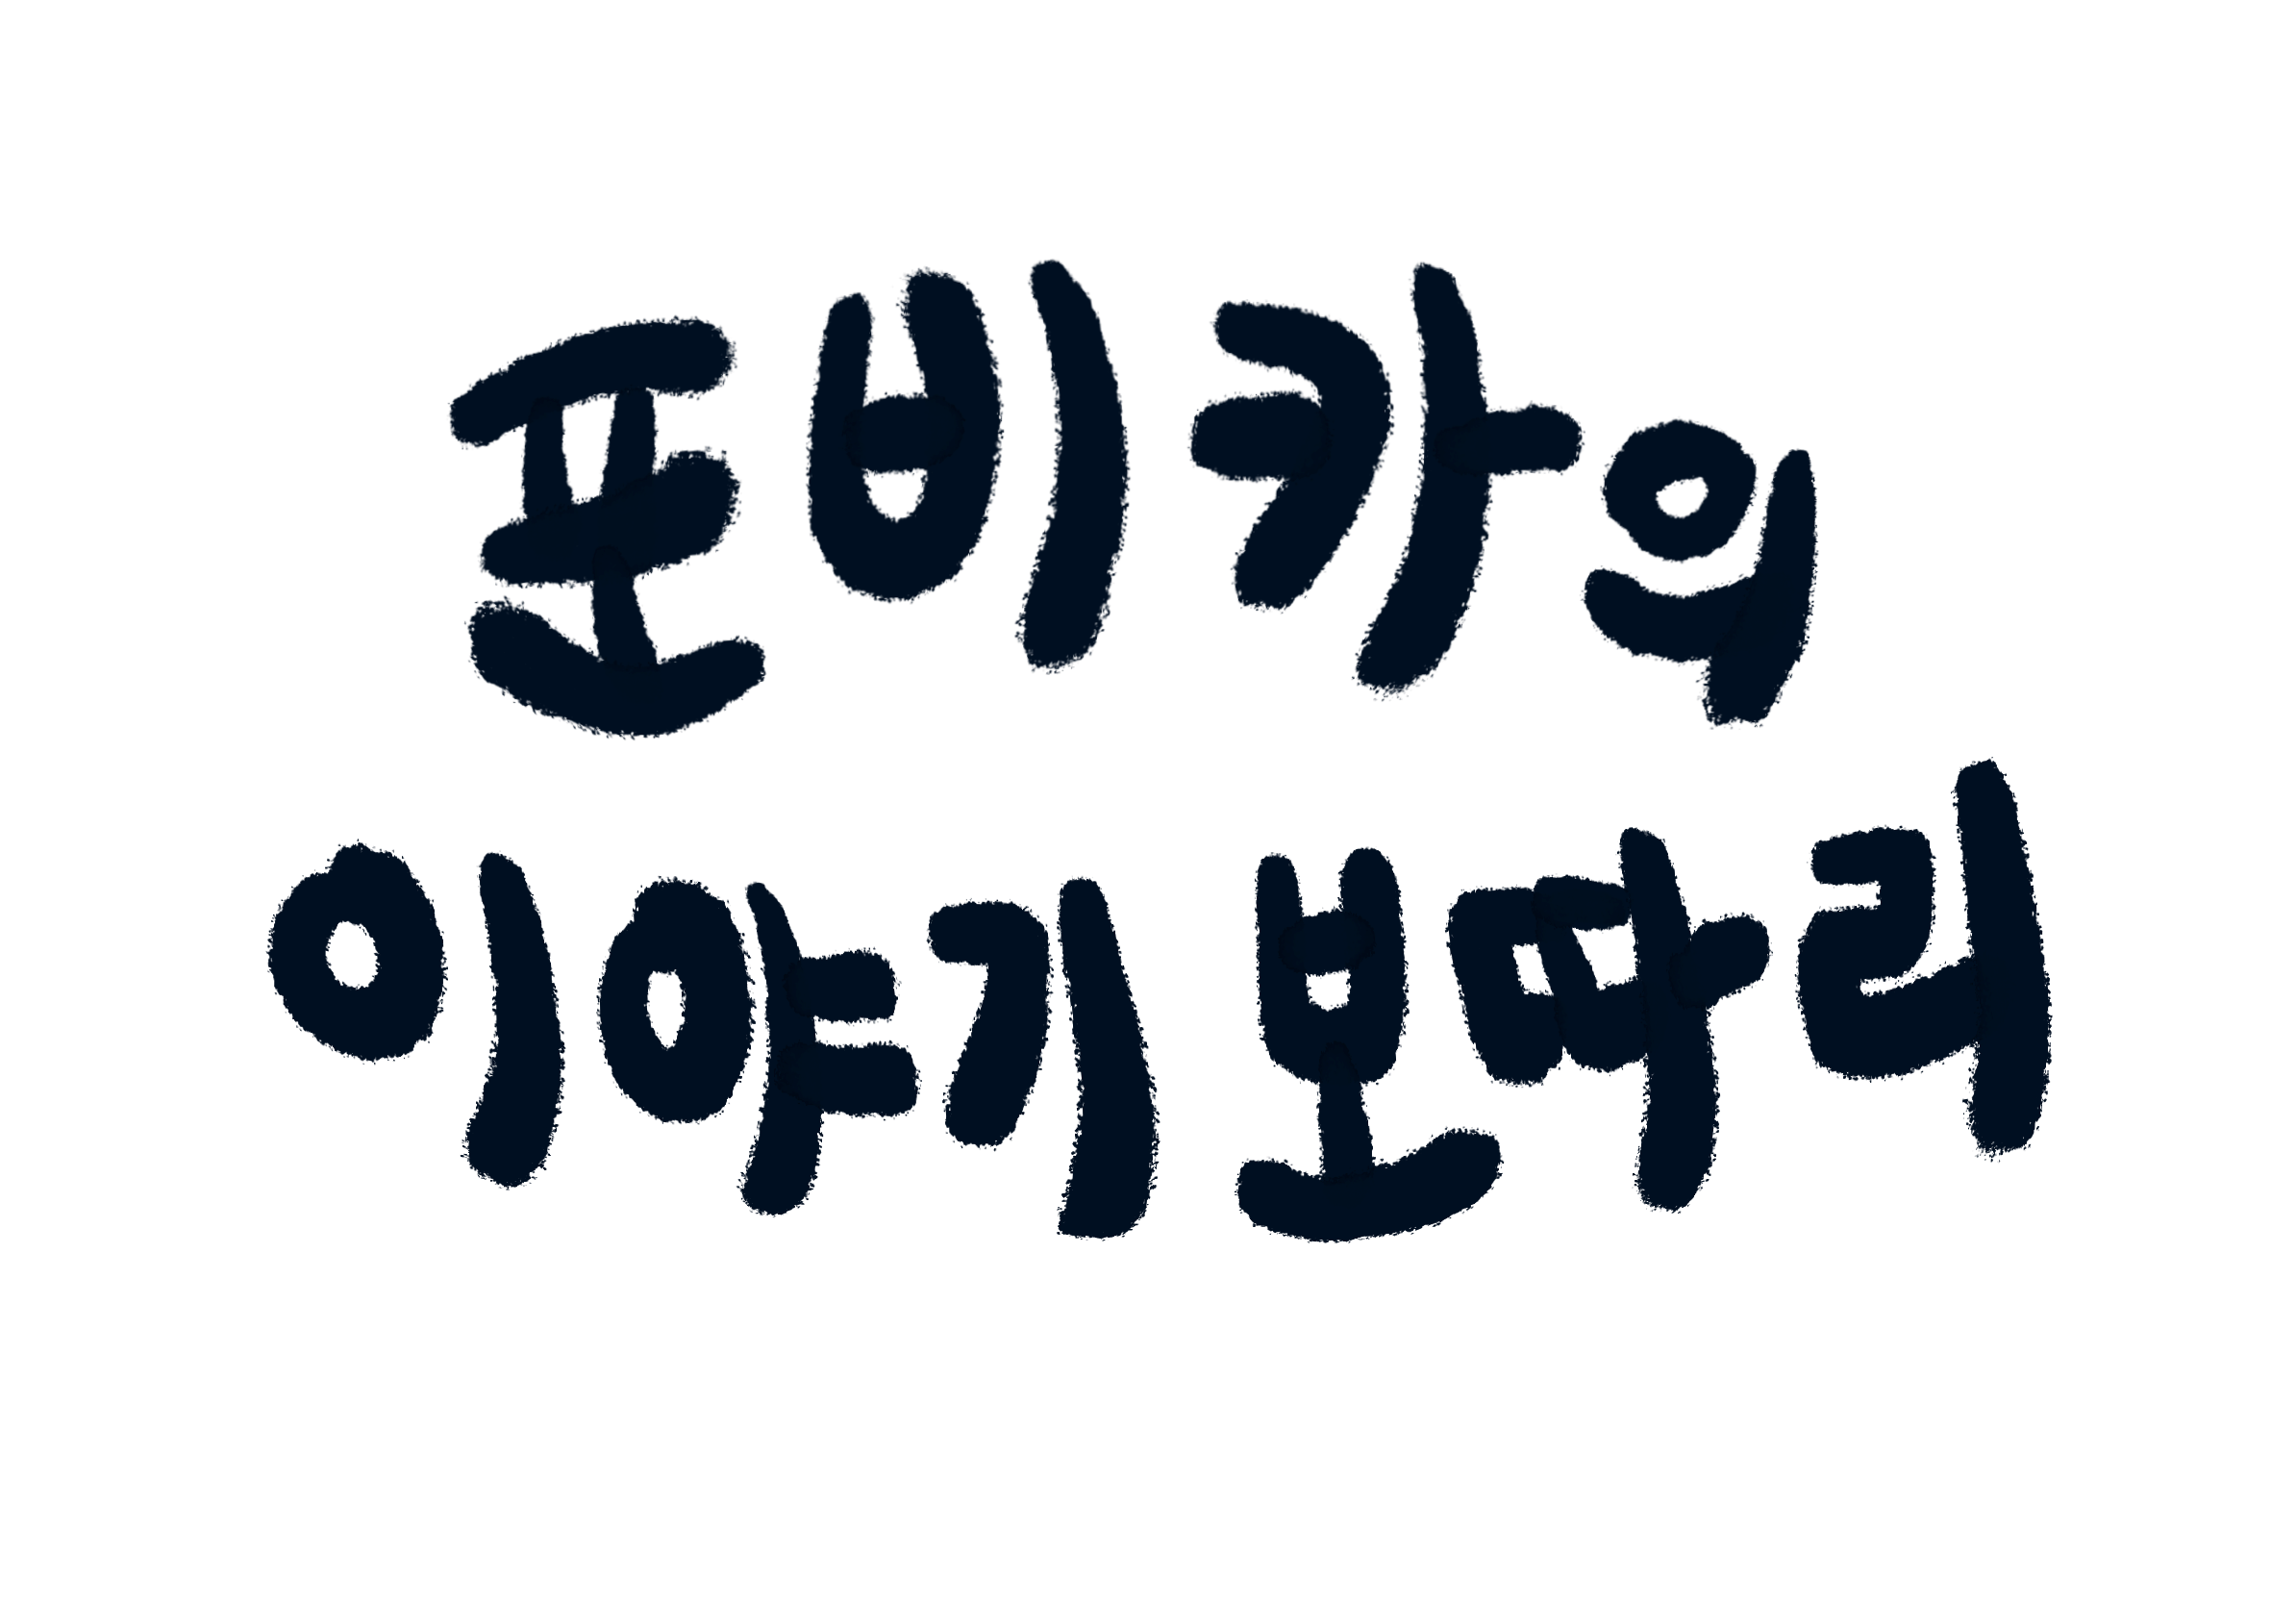 포비카의
이야기 보따리